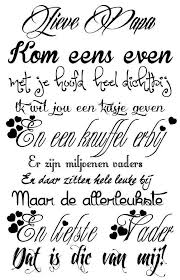 Lieve Papa
Kom eens even
met je hoofd heel dichtbij
Ik wil jou een kusje geven
En een knuffel erbij
Er zijn miljoenen vaders
En daar zitten hele leuke bij
Maar de allerleukste
En liefste Vader
Dat is die van mij!